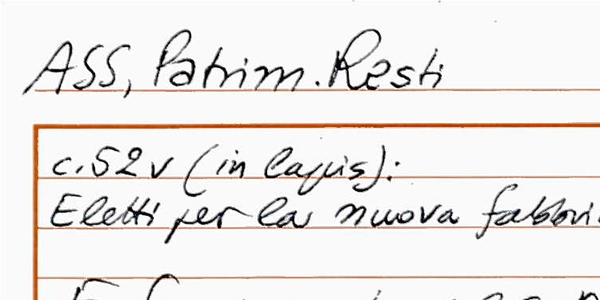 ASS, Patrim. Resti
c. 52v (in lapis):
Eletti per la nuova fabbri